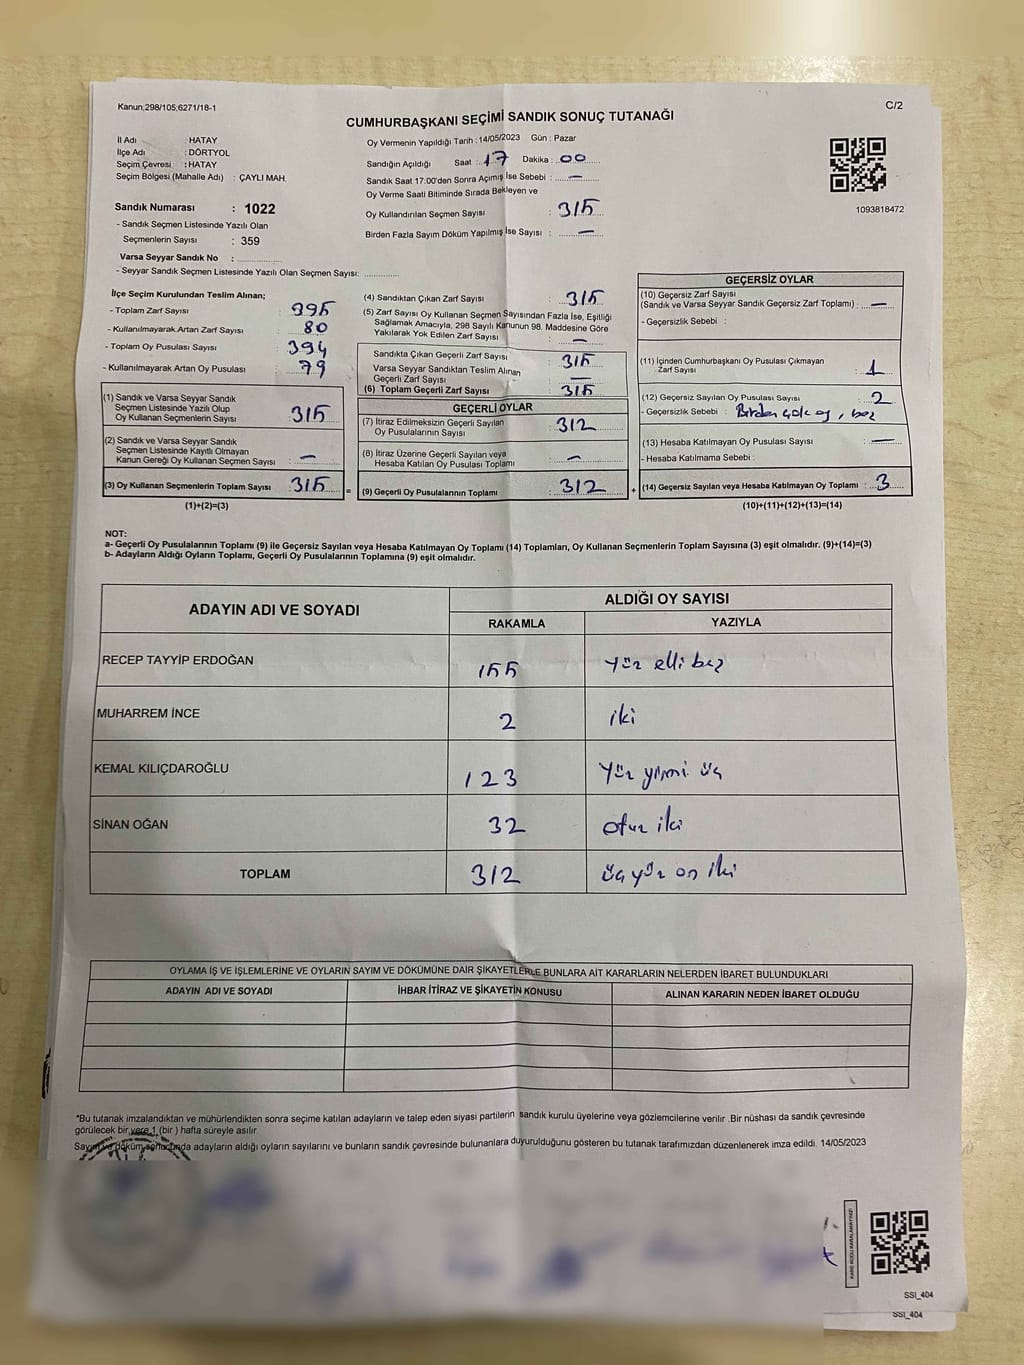 Kanun,298/105,6271/18-1
C/2
CUMHURBAŞKANI SEÇİMİ SANDIK SONUÇ TUTANAĞI
İl Adı : HATAY
İlçe Adı : DÖRTYOL
Seçim Çevresi : HATAY
Seçim Bölgesi (Mahalle Adı) : ÇAYLI MAH.
Sandık Numarası : 1022
- Sandık Seçmen Listesinde Yazılı Olan
Seçmenlerin Sayısı : 359
Varsa Seyyar Sandık No :
- Seyyar Sandık Seçmen Listesinde Yazılı Olan Seçmen Sayısı:
Oy Vermenin Yapıldığı Tarih : 14/05/2023 Gün : Pazar
Sandığın Açıldığı Saat : 17 Dakika : 00
Sandık Saat 17:00'den Sonra Açımış İse Sebebi : —
Oy Verme Saati Bitiminde Sırada Bekleyen ve
Oy Kullandırılan Seçmen Sayısı : 315
Birden Fazla Sayım Döküm Yapılmış İse Sayısı : —
1093818472
İlçe Seçim Kurulundan Teslim Alınan;
- Toplam Zarf Sayısı : 395
- Kullanılmayarak Artan Zarf Sayısı : 80
- Toplam Oy Pusulası Sayısı : 394
- Kullanılmayarak Artan Oy Pusulası : 79
(1) Sandık ve Varsa Seyyar Sandık
Seçmen Listesinde Yazılı Olup
Oy Kullanan Seçmenlerin Sayısı : 315
(2) Sandık ve Varsa Seyyar Sandık
Seçmen Listesinde Kayıtlı Olmayan
Kanun Gereği Oy Kullanan Seçmen Sayısı : —
(3) Oy Kullanan Seçmenlerin Toplam Sayısı : 315 =
(1)+(2)=(3)
(4) Sandıktan Çıkan Zarf Sayısı : 315
(5) Zarf Sayısı Oy Kullanan Seçmen Sayısından Fazla İse, Eşitliği
Sağlamak Amacıyla, 298 Sayılı Kanunun 98. Maddesine Göre
Yakılarak Yok Edilen Zarf Sayısı : —
Sandıkta Çıkan Geçerli Zarf Sayısı : 315
Varsa Seyyar Sandıktan Teslim Alınan
Geçerli Zarf Sayısı : —
(6) Toplam Geçerli Zarf Sayısı : 315
GEÇERLİ OYLAR
(7) İtiraz Edilmeksizin Geçerli Sayılan
Oy Pusulalarının Sayısı : 312
(8) İtiraz Üzerine Geçerli Sayılan veya
Hesaba Katılan Oy Pusulası Toplamı : —
(9) Geçerli Oy Pusulalarının Toplamı : 312 +
GEÇERSİZ OYLAR
(10) Geçersiz Zarf Sayısı
(Sandık ve Varsa Seyyar Sandık Geçersiz Zarf Toplamı) : —
- Geçersizlik Sebebi :
(11) İçinden Cumhurbaşkanı Oy Pusulası Çıkmayan
Zarf Sayısı : 1
(12) Geçersiz Sayılan Oy Pusulası Sayısı : 2
- Geçersizlik Sebebi : Birden çok oy, boş
(13) Hesaba Katılmayan Oy Pusulası Sayısı : —
- Hesaba Katılmama Sebebi :
(14) Geçersiz Sayılan veya Hesaba Katılmayan Oy Toplamı : 3
(10)+(11)+(12)+(13)=(14)
NOT:
a- Geçerli Oy Pusulalarının Toplamı (9) ile Geçersiz Sayılan veya Hesaba Katılmayan Oy Toplamı (14) Toplamları, Oy Kullanan Seçmenlerin Toplam Sayısına (3) eşit olmalıdır. (9)+(14)=(3)
b- Adayların Aldığı Oyların Toplamı, Geçerli Oy Pusulalarının Toplamına (9) eşit olmalıdır.
ADAYIN ADI VE SOYADI
ALDIĞI OY SAYISI
RAKAMLA YAZIYLA
RECEP TAYYİP ERDOĞAN 155 Yüz elli beş
MUHARREM İNCE 2 iki
KEMAL KILIÇDAROĞLU 123 Yüz yirmi üç
SİNAN OĞAN 32 otuz iki
TOPLAM 312 üç yüz on iki
OYLAMA İŞ VE İŞLEMLERİNE VE OYLARIN SAYIM VE DÖKÜMÜNE DAİR ŞİKAYETLERLE BUNLARA AİT KARARLARIN NELERDEN İBARET BULUNDUKLARI
ADAYIN ADI VE SOYADI İHBAR İTİRAZ VE ŞİKAYETİN KONUSU ALINAN KARARIN NEDEN İBARET OLDUĞU
*Bu tutanak imzalandıktan ve mühürlendikten sonra seçime katılan adayların ve talep eden siyasi partilerin sandık kurulu üyelerine veya gözlemcilerine verilir .Bir nüshası da sandık çevresinde
görülecek bir yere 1 (bir ) hafta süreyle asılır.
Sayım ve döküm sonucunda adayların aldığı oyların sayılarını ve bunların sandık çevresinde bulunanlara duyurulduğunu gösteren bu tutanak tarafımızdan düzenlenerek imza edildi. 14/05/2023
KARE KODU KARALAMAYINIZ!
SSI_404
SSI_404